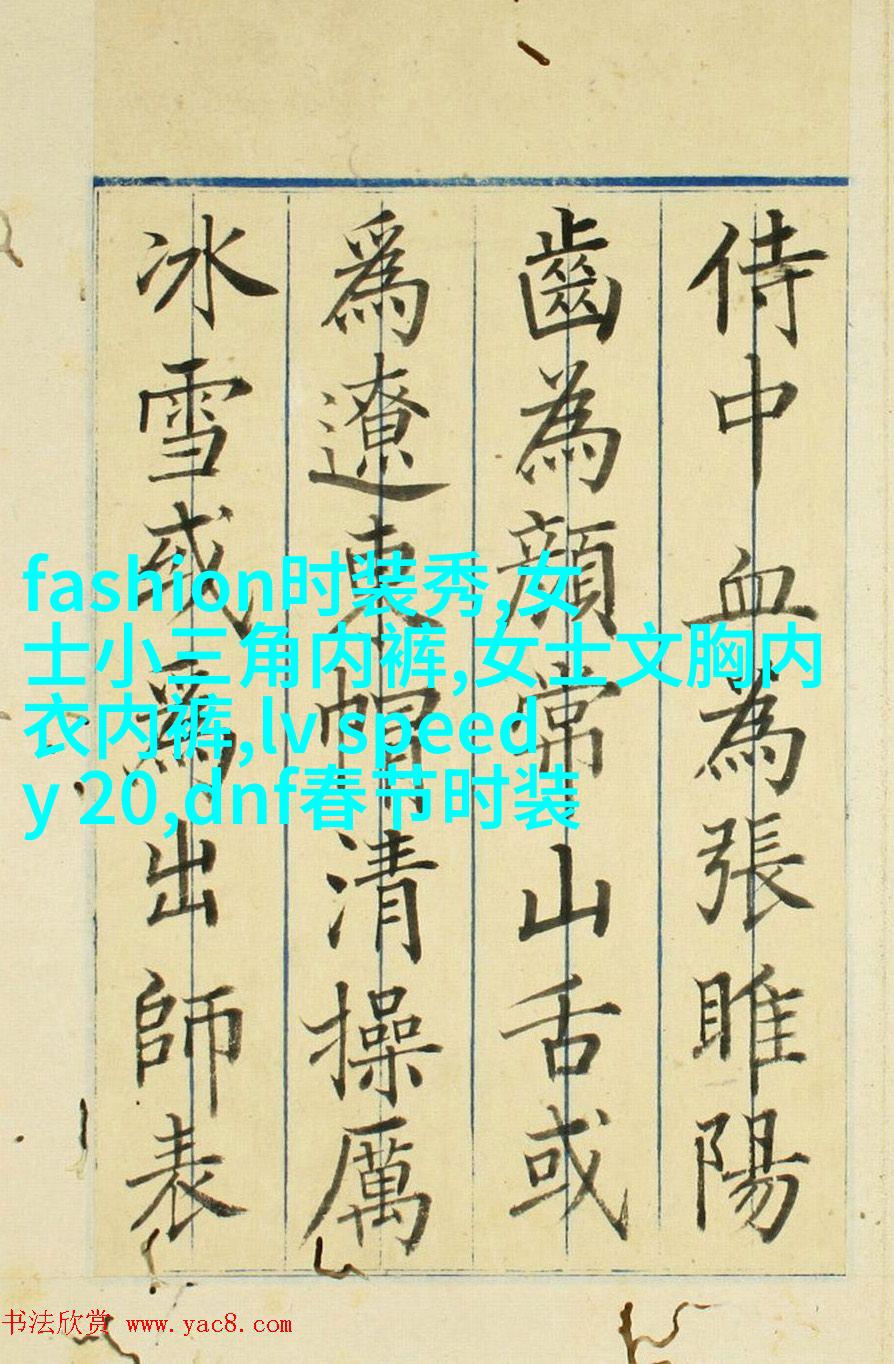 侍中血為張睢陽
齒為顏常山舌或
爲遼東帽清操厲
冰雪或爲出師表
fashion时装秀,女
士小三角内裤,女士文胸内
衣内裤,lv speed
y 20,dnf春节时装
书法欣赏 www.yac8.com